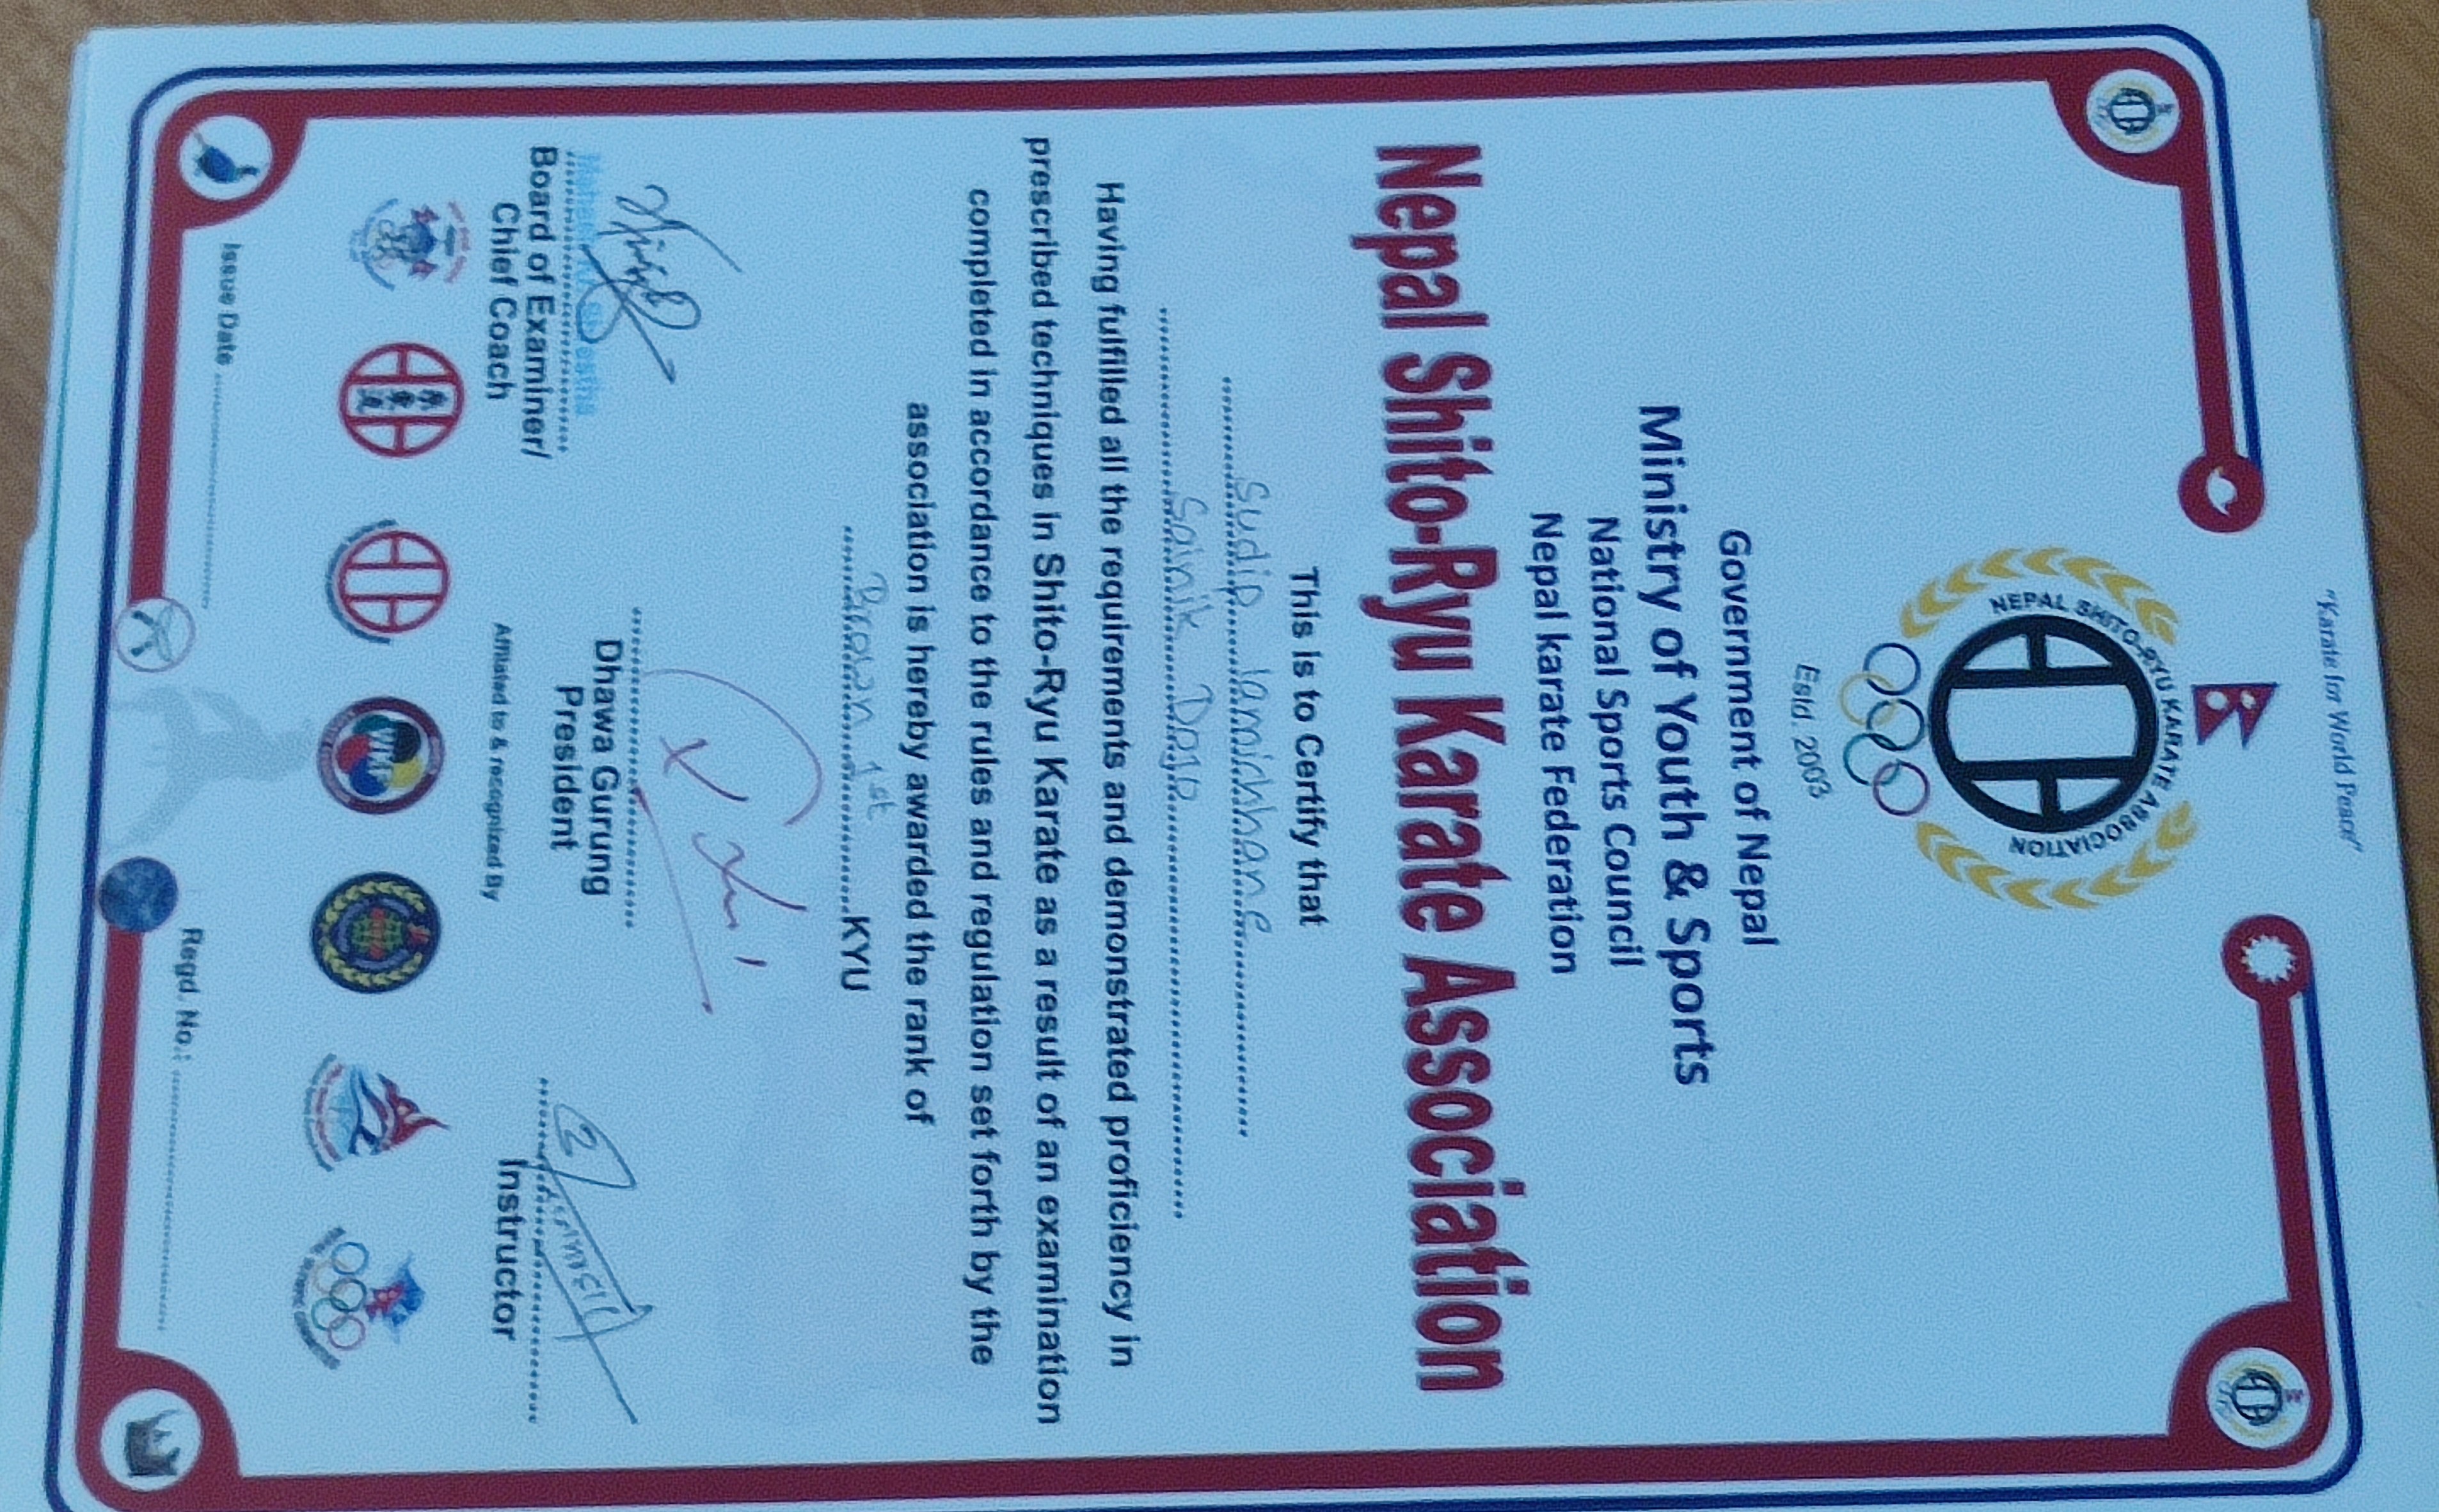 "Karate for World Peace"
NEPAL SHITO-RYU KARATE ASSOCIATION
Estd. 2003
Government of Nepal
Ministry of Youth & Sports
National Sports Council
Nepal karate Federation
Nepal Shito-Ryu Karate Association
This is to Certify that
Sudip lamichhane
Sainik Dojo
Having fulfilled all the requirements and demonstrated proficiency in
prescribed techniques in Shito-Ryu Karate as a result of an examination
completed in accordance to the rules and regulation set forth by the
association is hereby awarded the rank of
Brown 1st KYU
Board of Examiner/
Chief Coach
Dhawa Gurung
President
Instructor
Affiliated to & recognized By
WKF
Issue Date
Regd. No.: